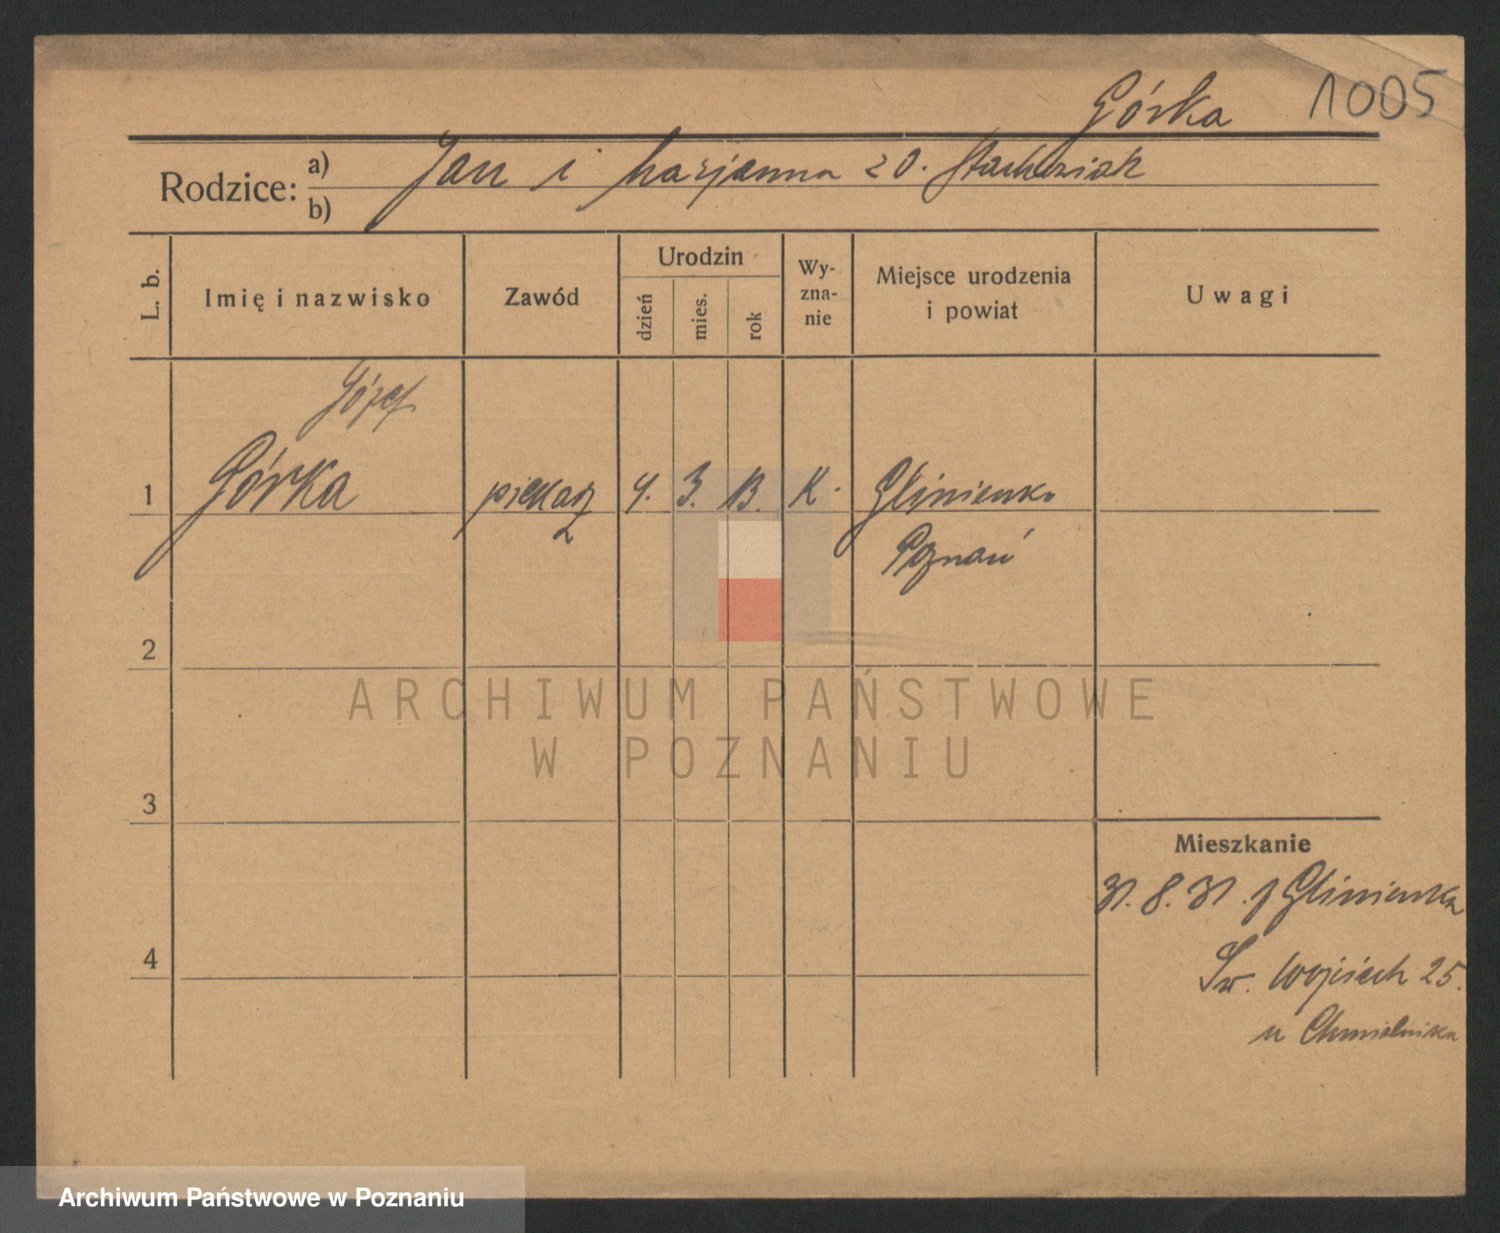 Górka 1005
Rodzice: a) Jan i Marjanna zd. Stachowiak
b)
L. b. Imię i nazwisko Zawód Urodzin dzień mies. rok Wy-zna-nie Miejsce urodzenia i powiat Uwagi
Józef
1 Górka piekarz 4. 3. 13. K. Glinienko
Poznań
2
ARCHIWUM PAŃSTWOWE
W POZNANIU
3
Mieszkanie
31. 8. 31. z Glinienka
4
Św. Wojciech 25.
u Chmielnika
Archiwum Państwowe w Poznaniu